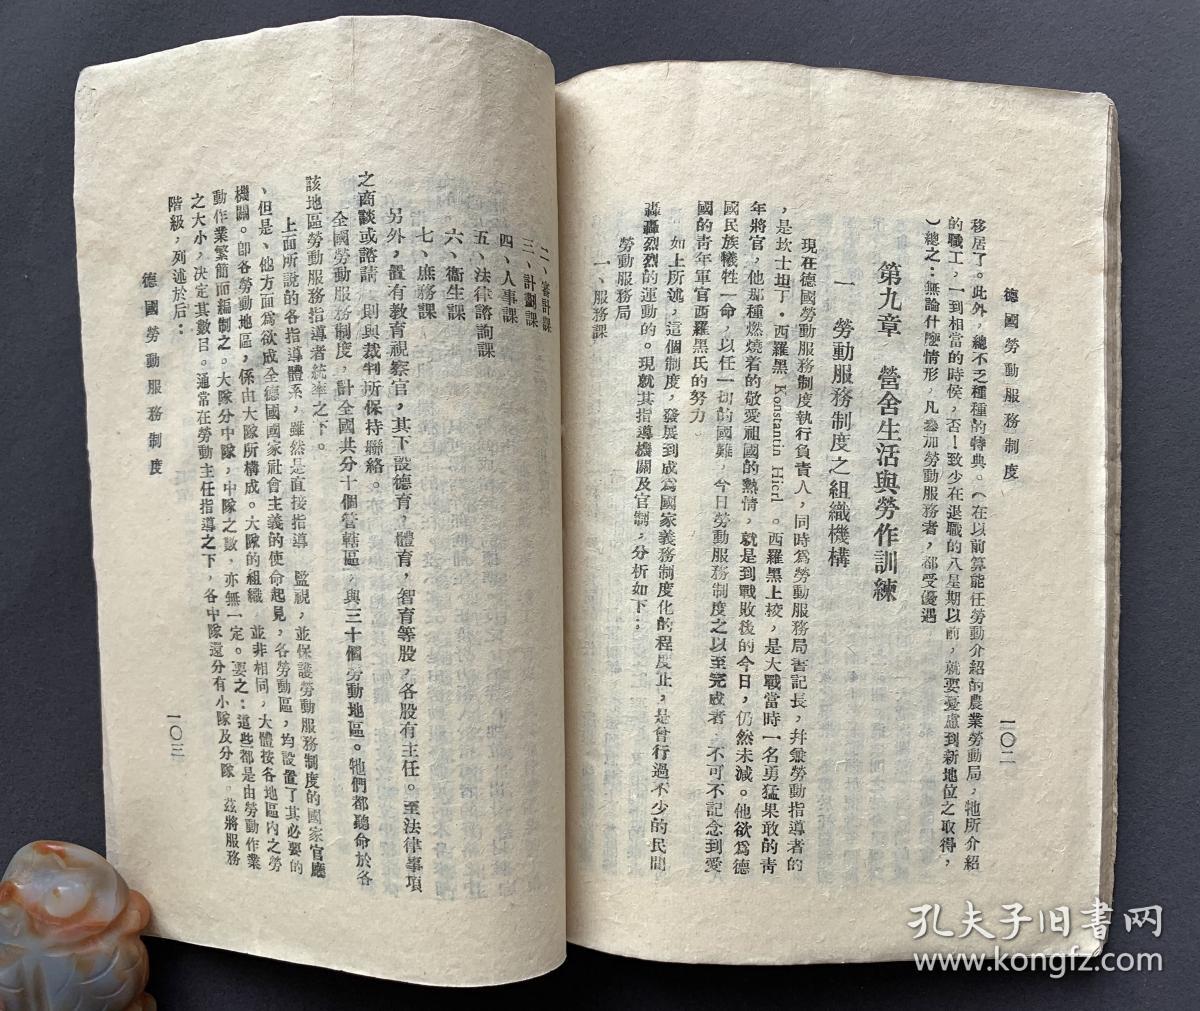 德國勞動服務制度
一〇二
移居了。此外，總不乏種種的特典。（在以前算能任勞動介紹的農業勞動局，牠所介紹
的職工，一到相當的時候，否！致少在退職的八星期以前，就要憂慮到新地位之取得，
）總之：無論什麼情形，凡參加勞動服務者，都受優遇
第九章　營舍生活與勞作訓練
一　勞動服務制度之組織機構
現在德國勞動服務制度執行負責人，同時爲勞動服務局書記長，幷兼勞動指導者的
，是坎士坦丁·西羅黑 Konstantin Hierl 。西羅黑上校，是大戰當時一名勇猛果敢的靑
年將官，他那種燃燒着的敬愛祖國的熱情，就是到戰敗後的今日，仍然未減。他欲爲德
國民族犧牲一命，以任一切的國難，今日勞動服務制度之以至完成者，不可不記念到愛
國的靑年軍官西羅黑氏的努力
如上所述，這個制度，發展到成爲國家義務制度化的程度止，是曾行過不少的民間
轟轟烈烈的運動的。現就其指導機關及官制，分析如下：
勞動服務局
一、服務課
二、審計課
三、計劃課
四、人事課
五、法律諮詢課
六、衞生課
七、庶務課
另外，置有教育視察官，其下設德育，體育，智育等股，各股有主任。至法律事項
之商談或諮請　則與裁判所保持聯絡。
全國勞動服務制度，計全國共分十個管轄區，與三十個勞動地區。牠們都聽命於各
該地區勞動服務指導者統率之下。
上面所說的各指導體系，雖然是直接指導　監視，並保護勞動服務制度的國家官廳
、但是、他方面爲欲成全德國國家社會主義的使命起見，各勞動區，均設置了其必要的
機關。卽各勞動地區，係由大隊所構成。大隊的組織　並非相同，大體按各地區內之勞
動作業繁簡而編制之。大隊分中隊，中隊之數，亦無一定。要之：這些都是由勞動作業
之大小，決定其數目。通常在勞動主任指導之下，各中隊還分有小隊及分隊。茲將服務
階級，列述於后：
德國勞動服務制度
一〇三
孔夫子旧書网
www.kongfz.com